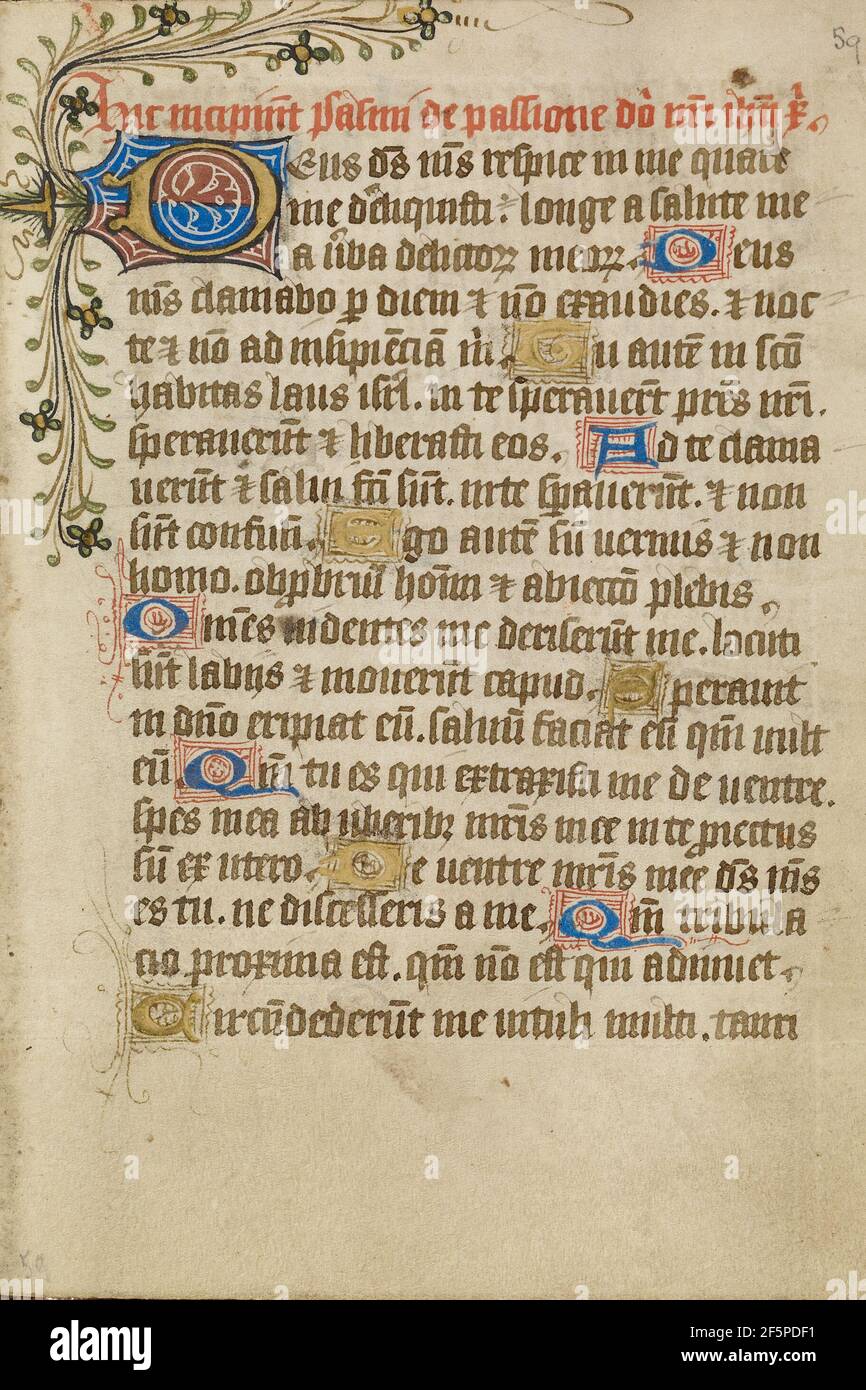 59
Hic incipiu̅t psalmi de passione do̅ nr̅i ihu̅ x̅.
Deus ds̅ ms̅ respice in me quare
me de̅liquisti: longe a salute me
a u̅ba delictoꝝ meoꝝ. Deus
ms̅ clamabo p diem ⁊ no̅ exaudies. ⁊ noc
te ⁊ no̅ ad insipie̅cia̅ m̅. Tu aute̅ in sco̅
habitas laus isrl. in te speraueru̅t pr̅es nr̅i.
sperauerūt ⁊ liberasti eos. Ad te clama
ueru̅t ⁊ salui fc̅i su̅t. in te sp̅aueru̅t. ⁊ non
su̅t confusi̅. Ego aute̅ su̅ uermis ⁊ non
homo. obp̅briu̅ hoi̅m ⁊ abiecto̅ plebis.
Om̅es uidentes me deriseru̅t me. locuti
su̅t labijs ⁊ moueru̅t capud. Sperauit
in dn̅o eripiat eu̅. saluu̅ faciat eu̅ qm̅ uult
eu̅. Qm̅ tu es qui extraxisti me de uentre.
spes mea ab uberibꝫ mr̅is mee in te p̅iectus
su̅ ex utero. De uentre mr̅is mee ds̅ ms̅
es tu. ne discesseris a me. Qm̅ tribula
cio proxima est. qm̅ no̅ est qui adiuuet.
Circu̅dederu̅t me uituli multi. tauri
59
alamy
Image ID: 2F5PDF1
www.alamy.com